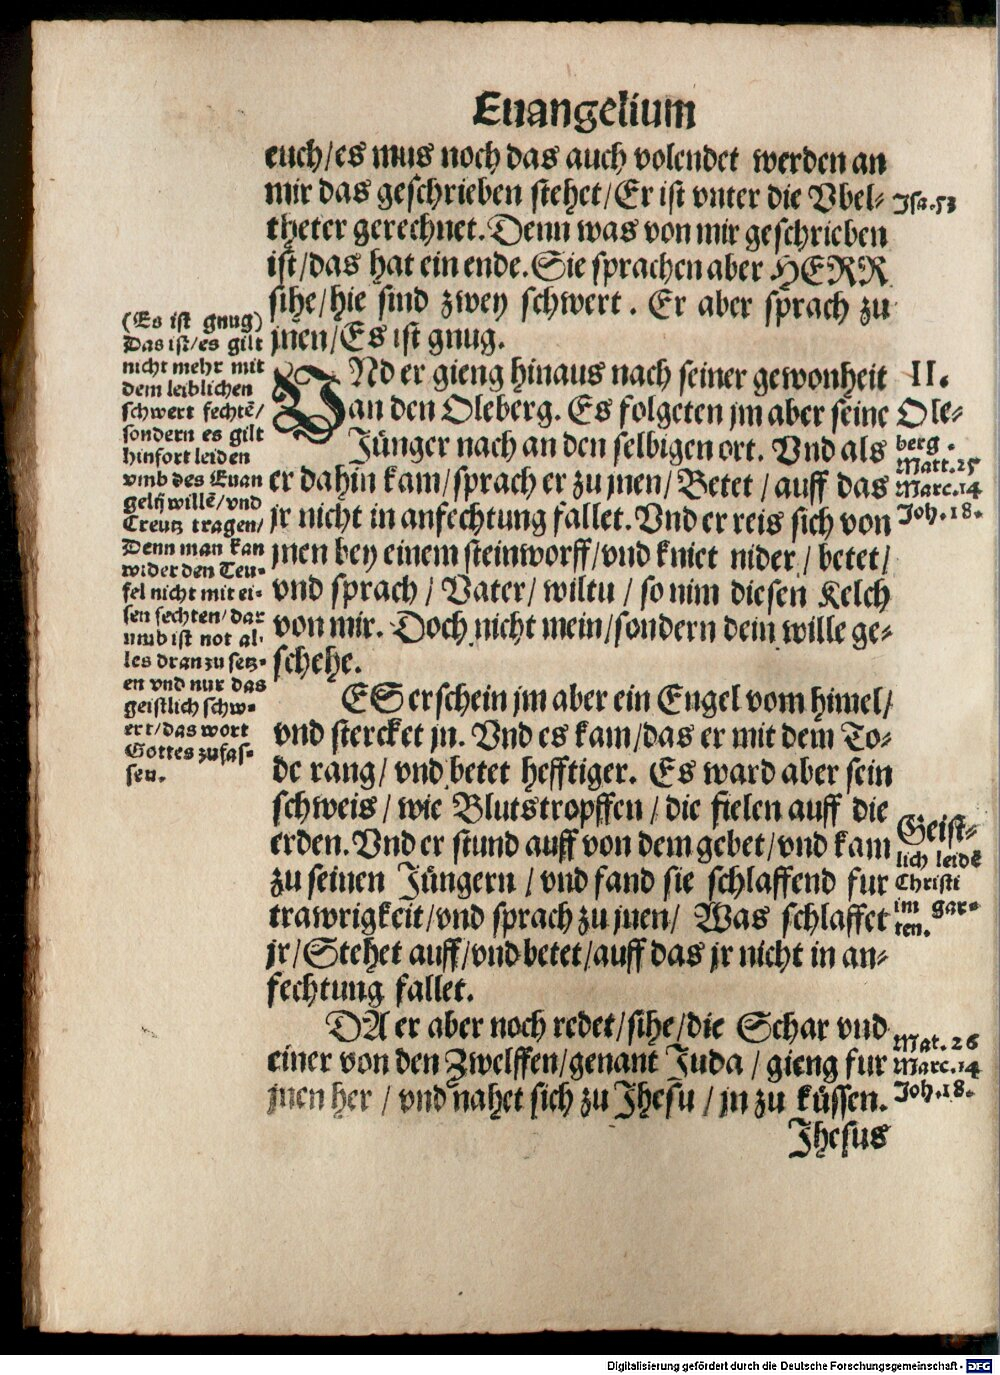 Euangelium
euch/es mus noch das auch volendet werden an
mir das geschrieben stehet/Er ist vnter die Vbel-
theter gerechnet. Denn was von mir geschrieben
ist/das hat ein ende. Sie sprachen aber HERR
sihe/hie sind zwey schwert. Er aber sprach zu
jnen/Es ist gnug.
VNd er gieng hinaus nach seiner gewonheit
an den Oleberg. Es folgeten jm aber seine
Jünger nach an den selbigen ort. Vnd als
er dahin kam/sprach er zu jnen/Betet/auff das
jr nicht in anfechtung fallet. Vnd er reis sich von
jnen bey einem steinworff/vnd kniet nider/betet/
vnd sprach/Vater/wiltu/so nim diesen Kelch
von mir. Doch nicht mein/sondern dein wille ge-
schehe.
ES erschein jm aber ein Engel vom himel/
vnd stercket jn. Vnd es kam/das er mit dem To-
de rang/vnd betet hefftiger. Es ward aber sein
schweis/wie Blutstropffen/die fielen auff die
erden. Vnd er stund auff von dem gebet/vnd kam
zu seinen Jüngern/vnd fand sie schlaffend fur
trawrigkeit/vnd sprach zu jnen/Was schlaffet
jr/Stehet auff/vnd betet/auff das jr nicht in an-
fechtung fallet.
DA er aber noch redet/sihe/die Schar vnd
einer von den Zwelffen/genant Juda/gieng fur
jnen her/vnd nahet sich zu Jhesu/jn zu küssen.
Jhesus
(Es ist gnug)
Das ist/es gilt
nicht mehr mit
dem leiblichen
schwert fechtē/
sondern es gilt
hinfort leiden
vmb des Euan
gelij willē/vnd
Creutz tragen/
Denn man kan
wider den Teu-
fel nicht mit ei-
sen fechten/dar
vmb ist not al-
les dran zu setz-
en vnd nur das
geistlich schw-
ert/das wort
Gottes zufas-
sen.
Jsa.53
II.
Ole-
berg.
Matt.25
Marc.14
Joh.18.
Geist-
lich leidē
Christi
im gar-
ten.
Mat.26
Marc.14
Joh.18.
Digitalisierung gefördert durch die Deutsche Forschungsgemeinschaft - DFG